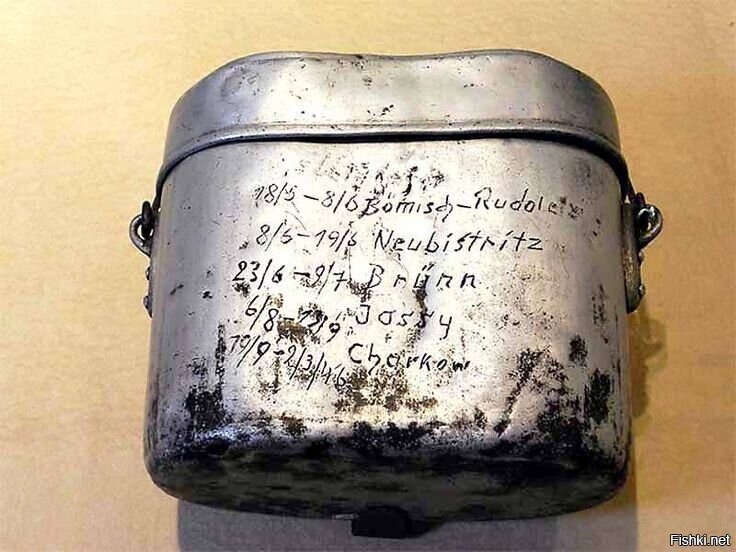 18/5-8/6 Bömisch-Rudoletz
8/6-19/6 Neubistritz
23/6-9/7 Brünn
6/8-18/9 Jassy
19/9-2/3/46 Charkow
Fishki.net